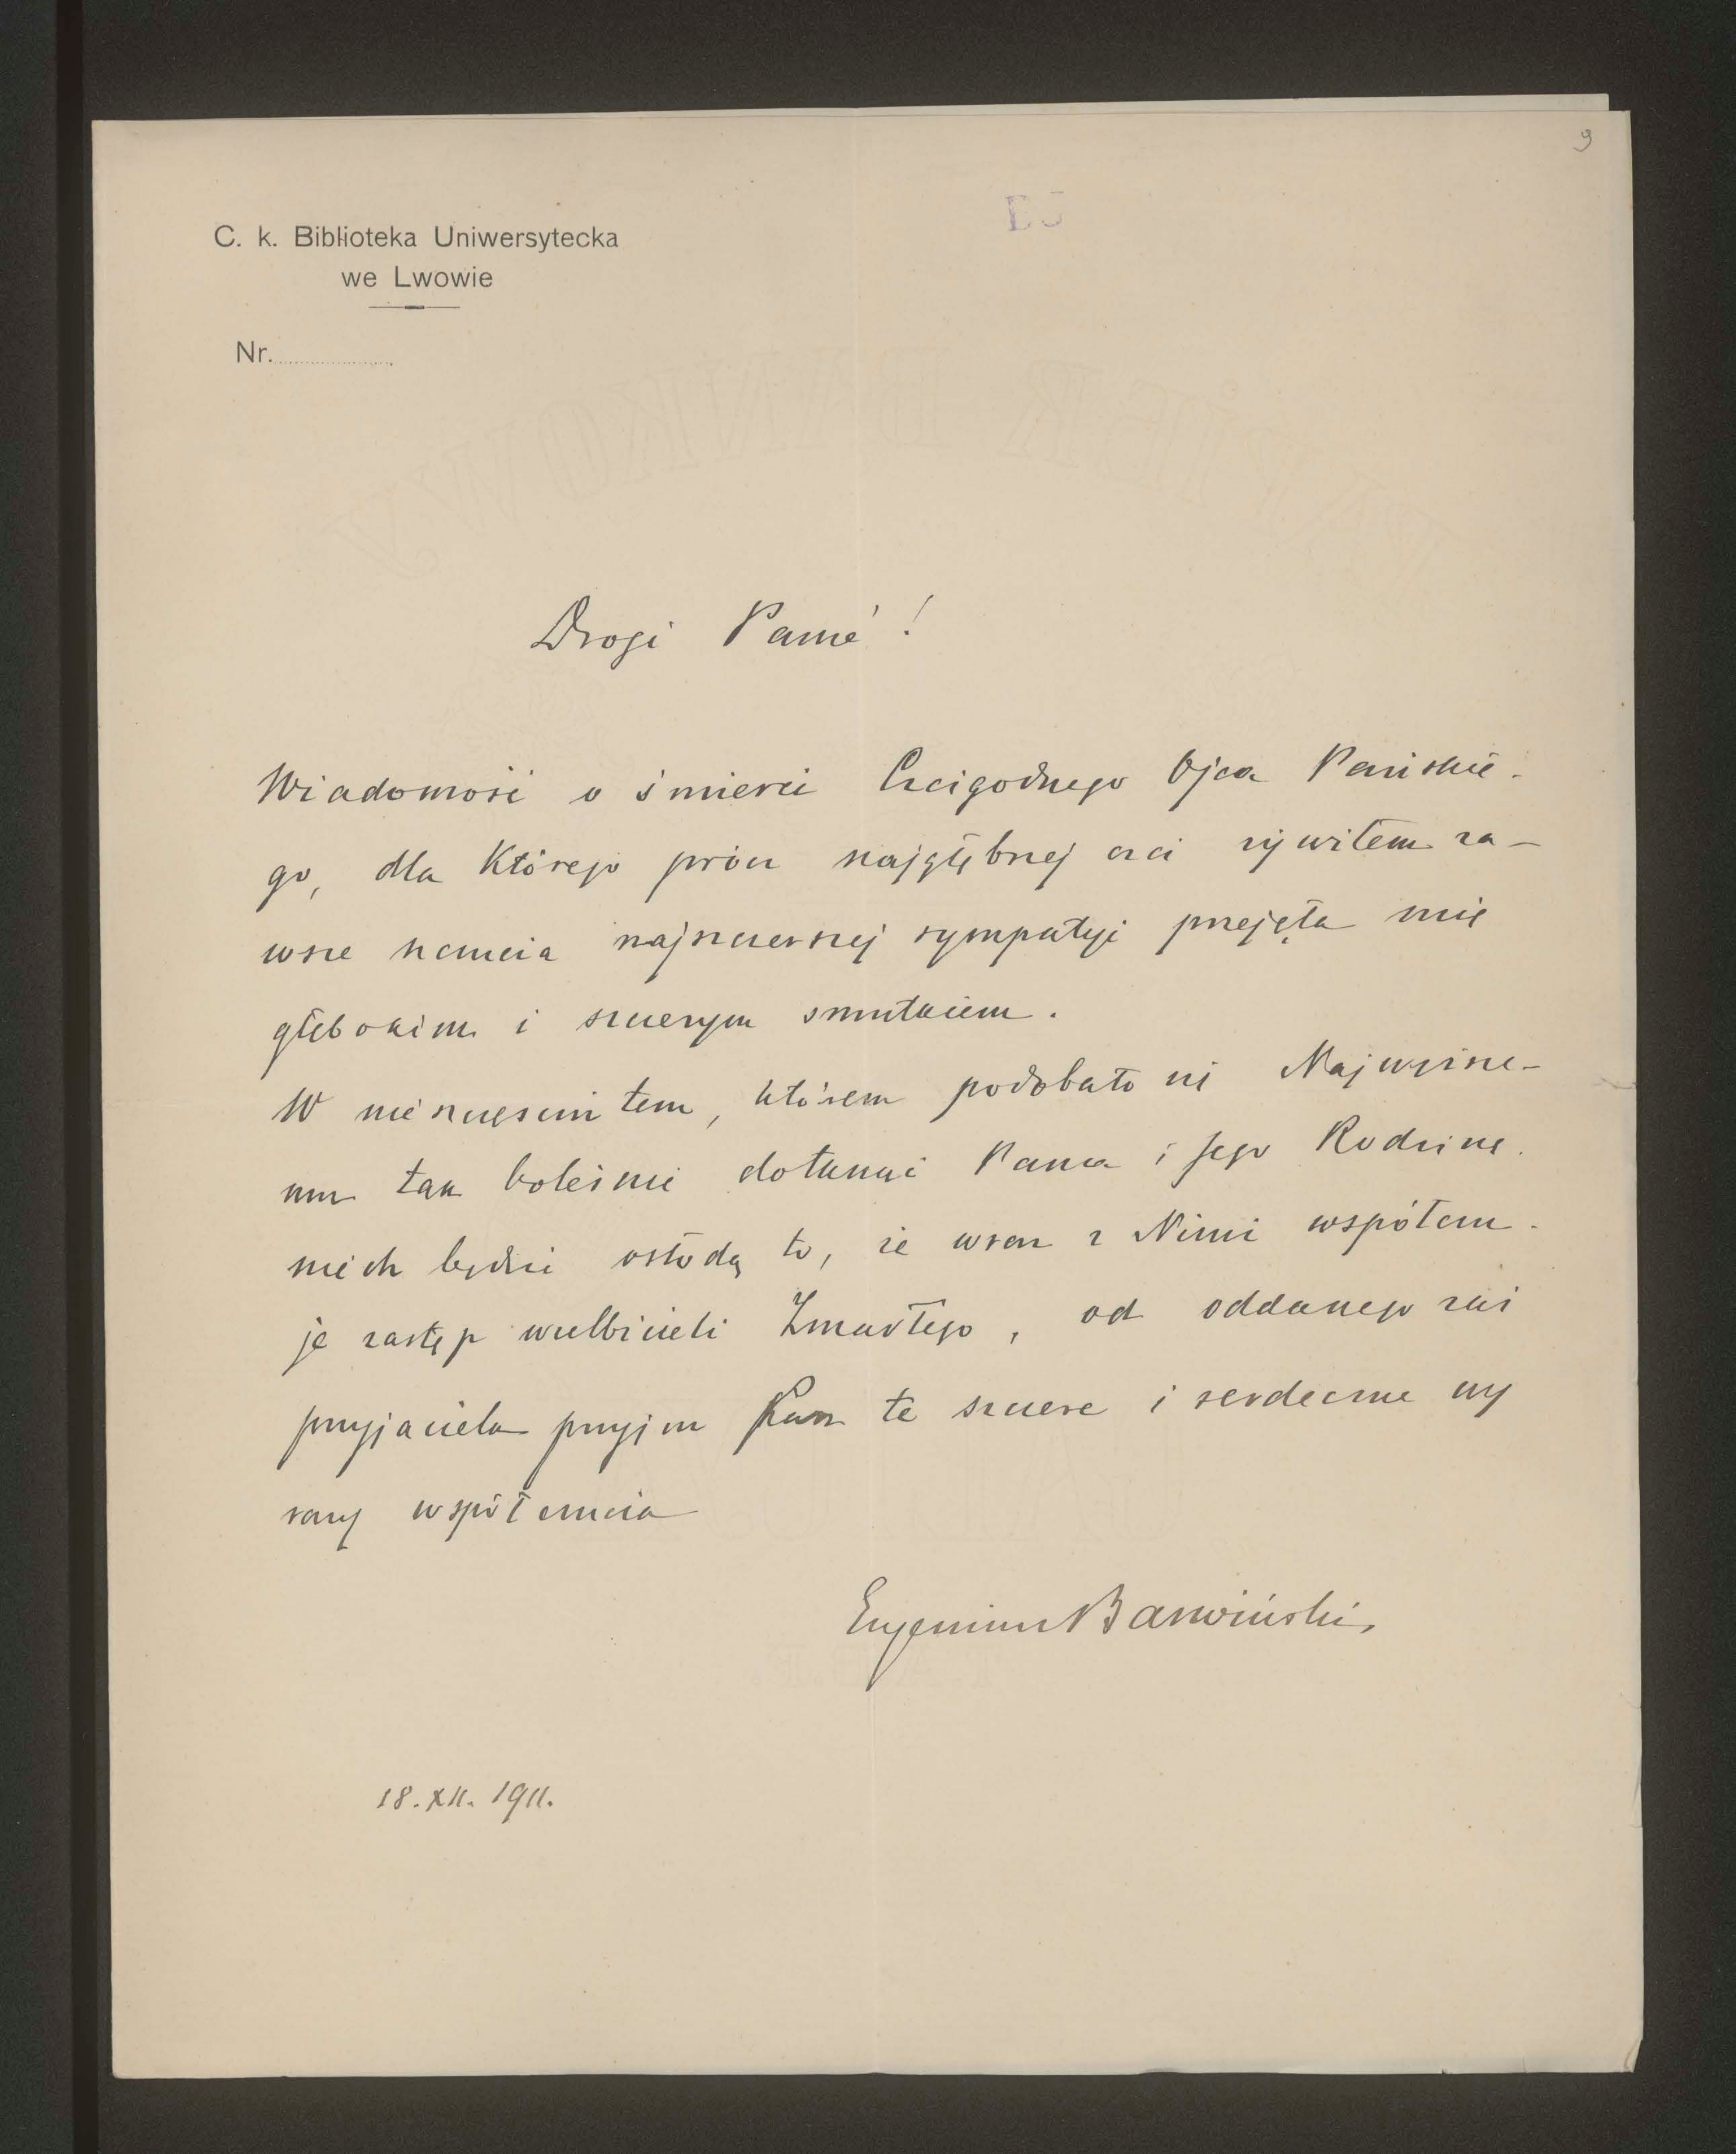 9
BJ
C. k. Biblioteka Uniwersytecka
we Lwowie
Nr.
Drogi Panie!
Wiadomość o śmierci Czcigodnego Ojca Pańskie-
go, dla którego prócz najgłębszej czci żywiłem za-
wsze uczucia najszczerszej sympatyi przejęła mię
głębokim i szczerym smutkiem.
W nieszczęściu tem, którem podobało się Najwyższe-
mu tak boleśnie dotknąć Pana i Jego Rodzinę
niech będzie osłodą to, że wraz z Nimi współczu-
je zastęp wielbicieli Zmarłego, od oddanego zaś
przyjaciela przyjm Pan te szczere i serdeczne wy
razy współczucia
Eugeniusz Barwiński,
18. XII. 1911.